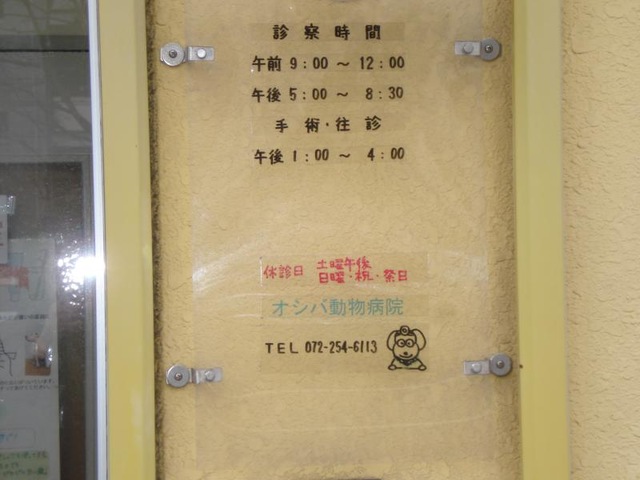 診察時間
午前 9:00 ～ 12:00
午後 5:00 ～ 8:30
手術・往診
午後 1:00 ～ 4:00
休診日 土曜午後
日曜・祝・祭日
オシバ動物病院
TEL 072-254-6113